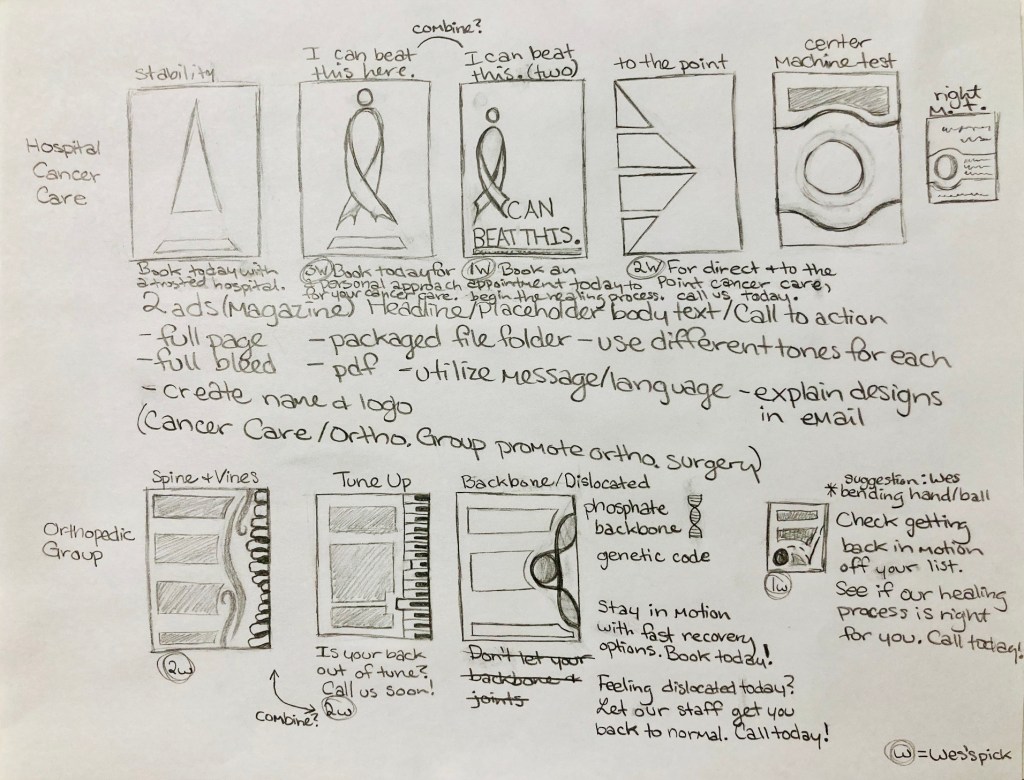 combine?
Stability
I can beat
this here.
I can beat
this. (two)
to the point
center
Machine test
right
M.t.
Hospital
Cancer
Care
CAN
BEAT THIS.
Book today with
a trusted hospital.
3w Book today for
a personal approach
for your cancer care.
1w Book an
appointment today to
begin the healing process.
2w For direct + to the
Point cancer care,
call us today.
2 ads (Magazine) Headline/Placeholder body text/Call to action
- full page - packaged file folder - use different tones for each
- full bleed - pdf - utilize message/language - explain designs
in email
- create name & logo
(Cancer Care/Ortho. Group promote ortho. surgery)
Orthopedic
Group
Spine + Vines
2w
combine?
Tune Up
Is your back
out of tune?
Call us soon!
2w
Backbone/Dislocated
phosphate
backbone
genetic code
Don't let your
backbone +
joints
Stay in motion
with fast recovery
options. Book today!
Feeling dislocated today?
Let our staff get you
back to normal. Call today!
1w
suggestion: Wes
* bending hand/ball
Check getting
back in motion
off your list.
See if our healing
process is right
for you. Call today!
w = Wes's pick